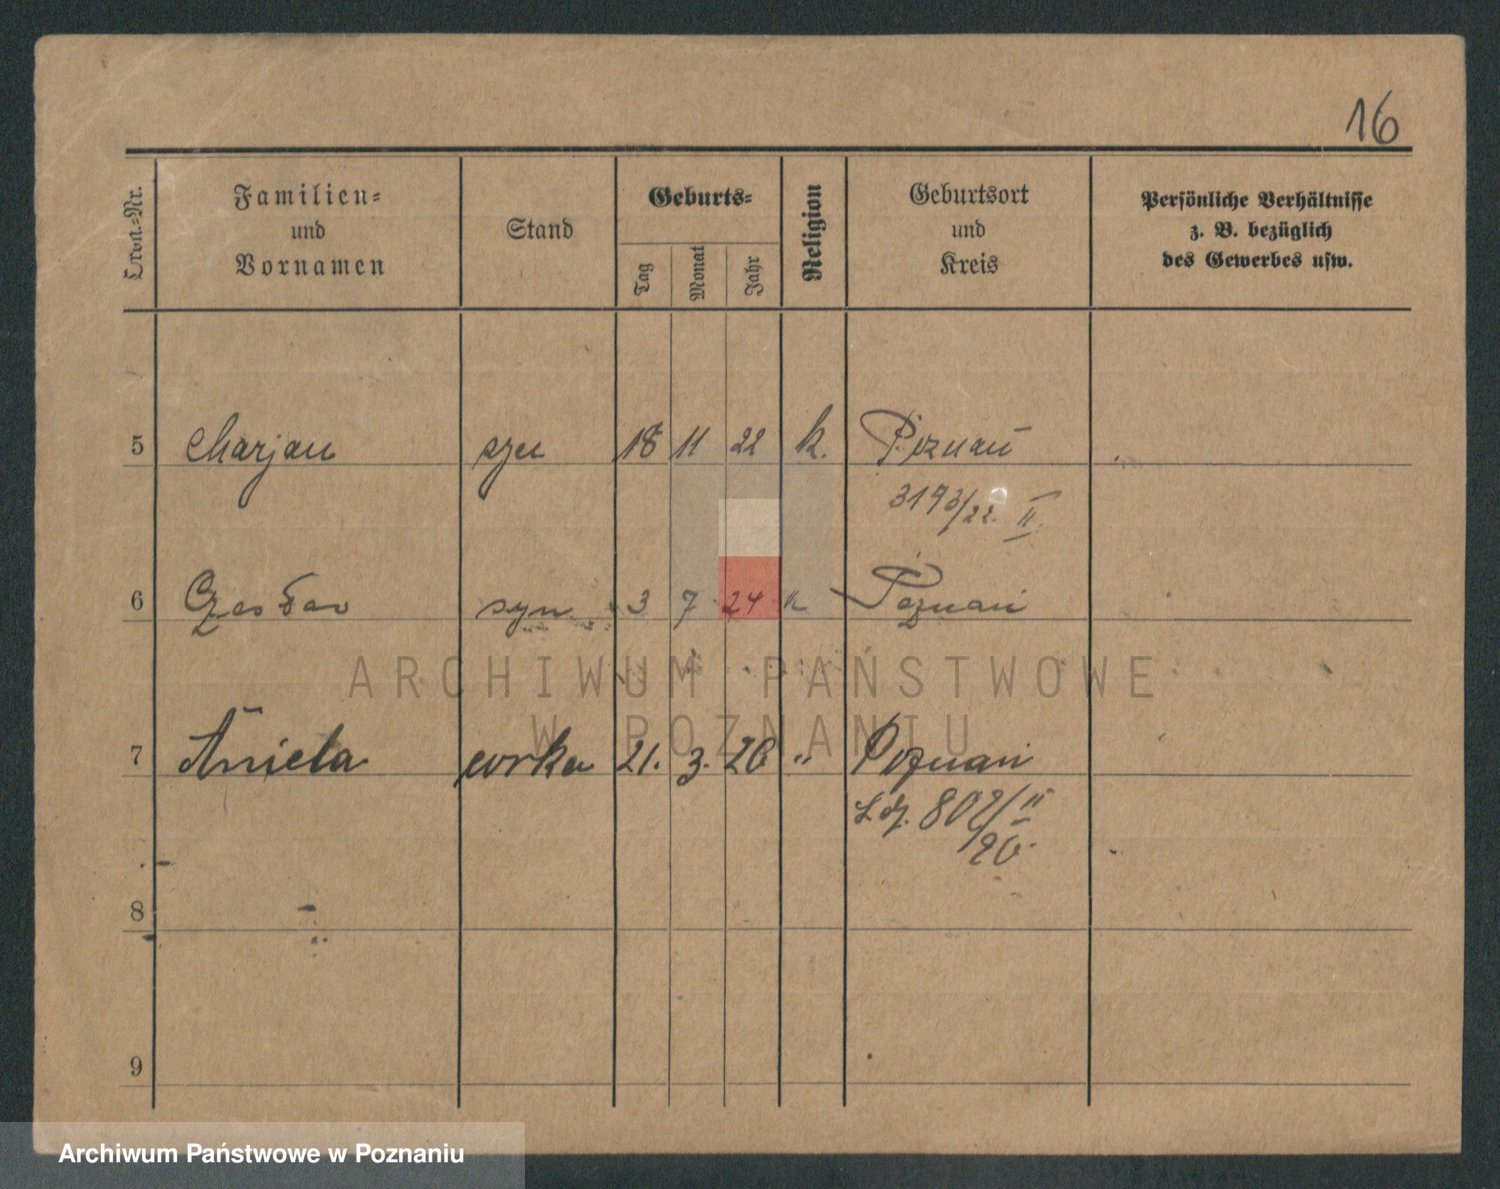 16
Ordn.-Nr.
Familien-
und
Vornamen
Stand
Geburts-
Tag
Monat
Jahr
Religion
Geburtsort
und
Kreis
Persönliche Verhältnisse
z. B. bezüglich
des Gewerbes usw.
5 Marjan syn 18 11 22 k. Poznań
3193/22. II
6 Czesław syn 3 7 24 k Poznań
ARCHIWUM PAŃSTWOWE
W POZNANIU
7 Aniela corka 21. 3. 26 " Poznań
802/II
26
8
9
Archiwum Państwowe w Poznaniu